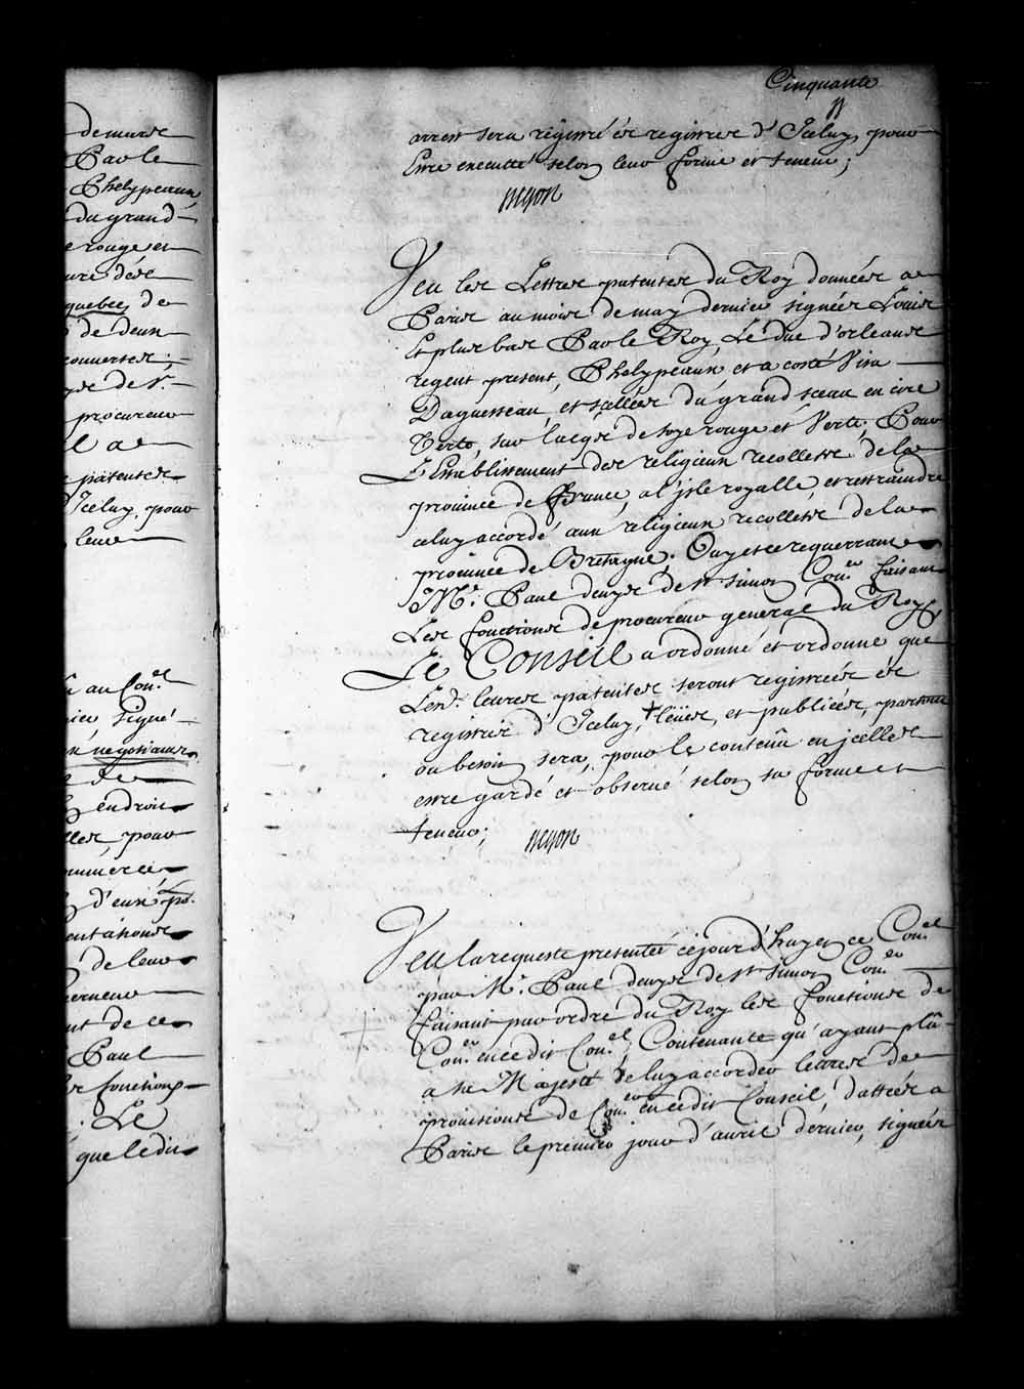 demars
Par le
Phelypeaux
du grand
rouge et
quebec, de
de deux
couvertes;
de St
procureur
patentes
Jceluy, pour
leur
au Con.el
signé
negotiants
de
endroits
pour
d'eux
de leurs
de ces
Paul
fonctions
Le
que ledit
Cinquante
arrest sera régistré és registres d'Jceluy, pour
Estre executté selon leur forme et teneur;
Veu les Lettres patentes du Roy données a
Paris au mois de may dernier signées Louis
Et plus bas Par le Roy, Le Duc d'orleans
regent present, Phelypeaux et a costé Visa
Daguesseau, et scellées du grand sceau en cire
Verte, sur lacqs de soye rouge et Verte, Pour
L'Establissement des religieux recollets de la
province de France, a l'jsle royalle, et restraindre
celuy accordé aux religieux recollets de la
province de Bretagne; Ouy et ce requerrant
M.e Paul denys de St simon Con.er faisant
Les fonctions de procureur general du Roy,
Le Conseil a ordonné et ordonne que
Lesd. lettres patentes seront registrées és
registres d'Jceluy, + lëües, et publiées, partout
ou besoin sera, pour le contenû en jcelles
estre gardé et observé selon sa forme et
teneur;
Veu la requeste presentée cejourd'huy en ce Con.el
par M.e Paul denys de St simon Con.er
faisant par ordre du Roy les fonctions de
Con.er en cedit Con.el, Contenante qu'ayant plû
a sa Majesté de luy accorder lettres de
provisions de Con.er en cedit Conseil, dattées a
Paris le premier jour d'avril dernier, signées